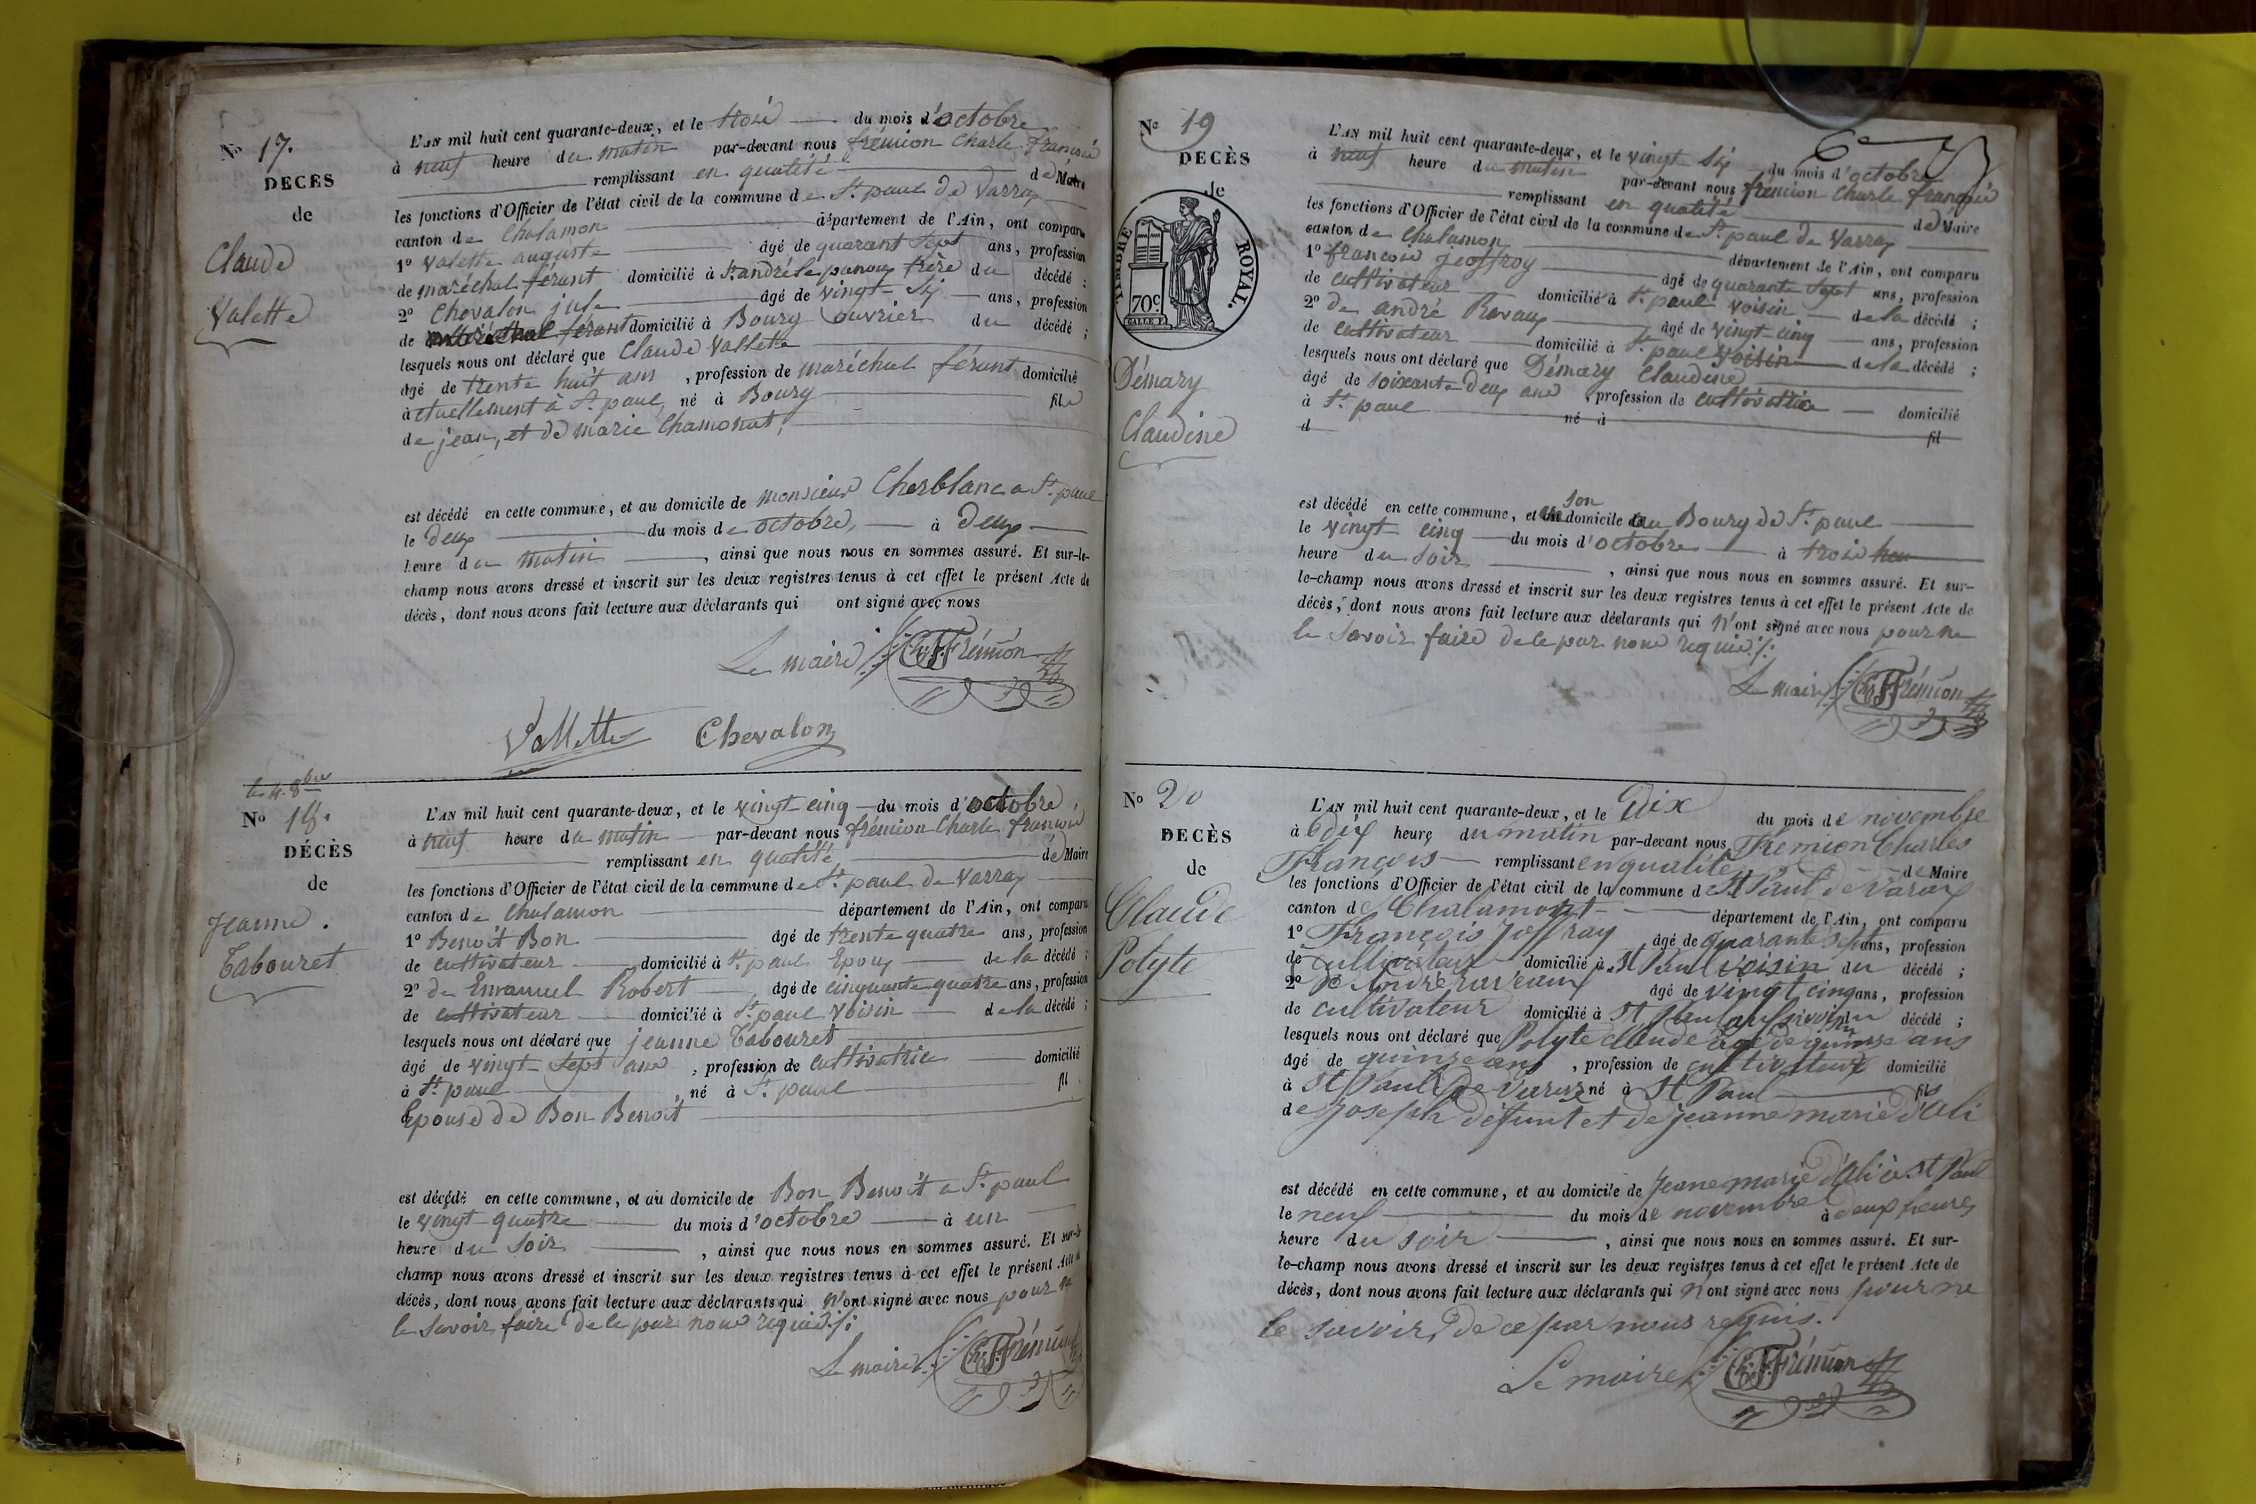 N° 17.
DÉCÈS
de
Claude
Valette
L'AN mil huit cent quarante-deux, et le trois du mois d'octobre
à neuf heure du matin par-devant nous frémion Charle françois
remplissant en qualité de Maire
les fonctions d'Officier de l'état civil de la commune de St paul de Varray
canton de Chalamon département de l'Ain, ont comparu
1° Valette auguste âgé de quarant sept ans, profession
de maréchal férant domicilié à St andré le panoux frère du décédé ;
2° Chevalon jule âgé de vingt six ans, profession
de maréchal férant domicilié à Bourg ouvrier du décédé ;
lesquels nous ont déclaré que Claude Vallette
âgé de trente huit ans , profession de maréchal férant domicilié
àctuellement à St paul, né à Bourg fils
de jean, et de marie Chamonat,
est décédé en cette commune, et au domicile de monsieur Cherblanc a St paul
le deux du mois de octobre, à deux
heure du matin , ainsi que nous nous en sommes assuré. Et sur-le-
champ nous avons dressé et inscrit sur les deux registres tenus à cet effet le présent Acte de
décès, dont nous avons fait lecture aux déclarants qui ont signé avec nous
Le maire Ch. F. Frémion
Vallette Chevalon
le 4 8bre
N° 18.
DÉCÈS
de
Jeanne.
Tabouret
L'AN mil huit cent quarante-deux, et le vingt cinq du mois d'octobre,
à neuf heure du matin par-devant nous frémion Charle françois
remplissant en qualité de Maire
les fonctions d'Officier de l'état civil de la commune de St paul de Varray
canton de Chalamon département de l'Ain, ont comparu
1° Benoit Bon âgé de trente quatre ans, profession
de cultivateur domicilié à St paul Epoux de la décédé ;
2° de Emanuel Robert âgé de cinquante quatre ans, profession
de cultivateur domicilié à St paul Voisin de la décédé ;
lesquels nous ont déclaré que jeanne Tabouret
âgé de vingt sept ans , profession de cultivatrice domicilié
à St paul , né à St paul fil
Epouse de Bon Benoit
est décédé en cette commune, et au domicile de Bon Benoit a St paul
le vingt quatre du mois d'octobre à un
heure du soir , ainsi que nous nous en sommes assuré. Et sur-le-
champ nous avons dressé et inscrit sur les deux registres tenus à cet effet le présent Acte de
décès, dont nous avons fait lecture aux déclarants qui n'ont signé avec nous pour ne
le savoir faire de le par nous requis
Le maire Ch. F. Frémion
N° 19
DÉCÈS
de
TIMBRE ROYAL.
70c.
Démary
Claudine
L'AN mil huit cent quarante-deux, et le vingt six du mois d'octobre
à neuf heure du matin par-devant nous frémion Charle françois
remplissant en qualité de Maire
les fonctions d'Officier de l'état civil de la commune de St paul de Varray
canton de Chalamon département de l'Ain, ont comparu
1° françois jeoffroy âgé de quarante sept ans, profession
de cultivateur domicilié à St paul voisin de la décédé ;
2° de andré Ravaux âgé de vingt cinq ans, profession
de cultivateur domicilié à St paul voisin de la décédé ;
lesquels nous ont déclaré que Démary Claudine
âgé de soixante deux ans , profession de cultivatrice domicilié
à St paul né à fil
d
est décédé en cette commune, et son domicile au Bourg de St paul
le vingt cinq du mois d'octobre à trois heu
heure du soir , ainsi que nous nous en sommes assuré. Et sur-
le-champ nous avons dressé et inscrit sur les deux registres tenus à cet effet le présent Acte de
décès, dont nous avons fait lecture aux déclarants qui n'ont signé avec nous pour ne
le savoir faire de le par nous requis
Le maire Ch. F. Frémion
N° 20
DÉCÈS
de
Claude
Polyte
L'AN mil huit cent quarante-deux, et le Dix du mois de novembre
à Dix heure du matin par-devant nous Frémion Charles
François remplissant en qualité de Maire
les fonctions d'Officier de l'état civil de la commune de St Paul de Varax
canton de Chalamont département de l'Ain, ont comparu
1° François Joffray âgé de quarante sept ans, profession
de cultivateur domicilié à St Paul voisin du décédé ;
2° De André raveaux âgé de vingt cinq ans, profession
de cultivateur domicilié à St Paul du décédé ;
lesquels nous ont déclaré que Polyte Claude agé de quinze ans
âgé de quinze ans , profession de cultivateur domicilié
à St Paul de Varax né à St Paul fils
de joseph défunt et de jeanne marie d'Ali
est décédé en cette commune, et au domicile de Jeane marie d'Ali à St Paul
le neuf du mois de novembre à deux heures
heure du soir , ainsi que nous nous en sommes assuré. Et sur-
le-champ nous avons dressé et inscrit sur les deux registres tenus à cet effet le présent Acte de
décès, dont nous avons fait lecture aux déclarants qui n'ont signé avec nous pour ne
le savoir, de ce par nous requis.
Le maire Ch. F. Frémion